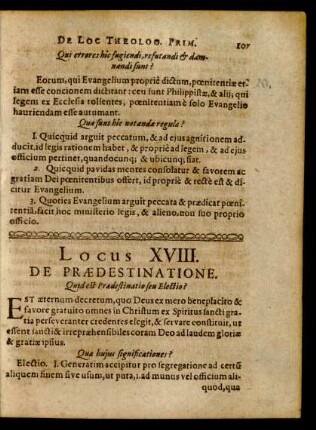 DE LOC THEOLOG. PRIM. 107
Qui errores hîc fugiendi, refutandi & dam-
nandi sunt?
Eorum, qui Evangelium propriè dictum, pœnitentiæ et-
iam esse concionem dictitant: ceu sunt Philippistæ, & alij, qui
legem ex Ecclesia tollentes, pœnitentiam è solo Evangelio
hauriendam esse autumant.
Quæ sunt hîc notanda regulæ?
1. Quicquid arguit peccatum, & ad ejus agnitionem ad-
ducit, id legis rationem habet, & propriè ad legem, & ad ejus
officium pertinet, quandocunq; & ubicunq; fiat.
2. Quicquid pavidas mentes consolatur & favorem ac
gratiam Dei pœnitentibus offert, id propriè & rectè est & di-
citur Evangelium.
3. Quoties Evangelium arguit peccata & prædicat pœni-
tentiã, facit hoc ministerio legis, & alieno, non suo proprio
officio.
Locus XVIII.
DE PRÆDESTINATIONE.
Quid est Prædestinatio seu Electio?
EST æternum decretum, quo Deus ex mero beneplacito &
favore gratuito omnes in Christum ex Spiritus sancti gra-
tia perseveranter credentes elegit, & servare constituit, ut
essent sancti & irrepræhensibiles coram Deo ad laudem gloriæ
& gratiæ ipsius.
Quæ hujus significationes?
Electio. 1. Generatim accipitur pro segregatione ad certũ
aliquem finem sive usum, ut puta, 1. ad munus vel officium ali-
quod, qua